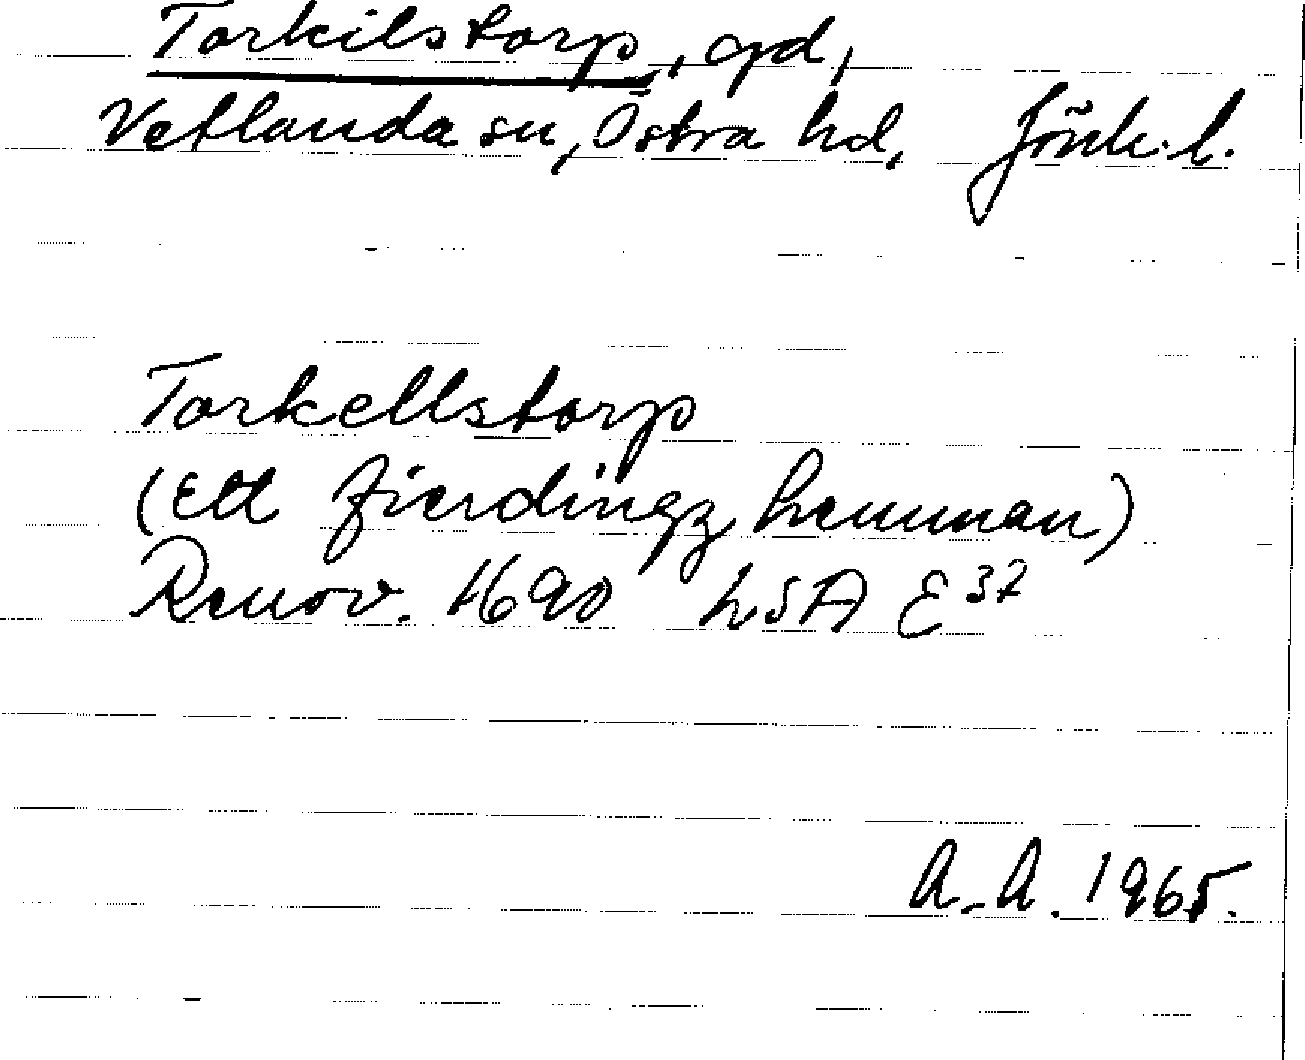 Torkilstorp, gd,
Vetlanda sn, Östra hd, Jönk. l.
Torkellstorp
(Ett fierdingz hemman)
Renov. 1690 LSA E 37
A. A. 1965.